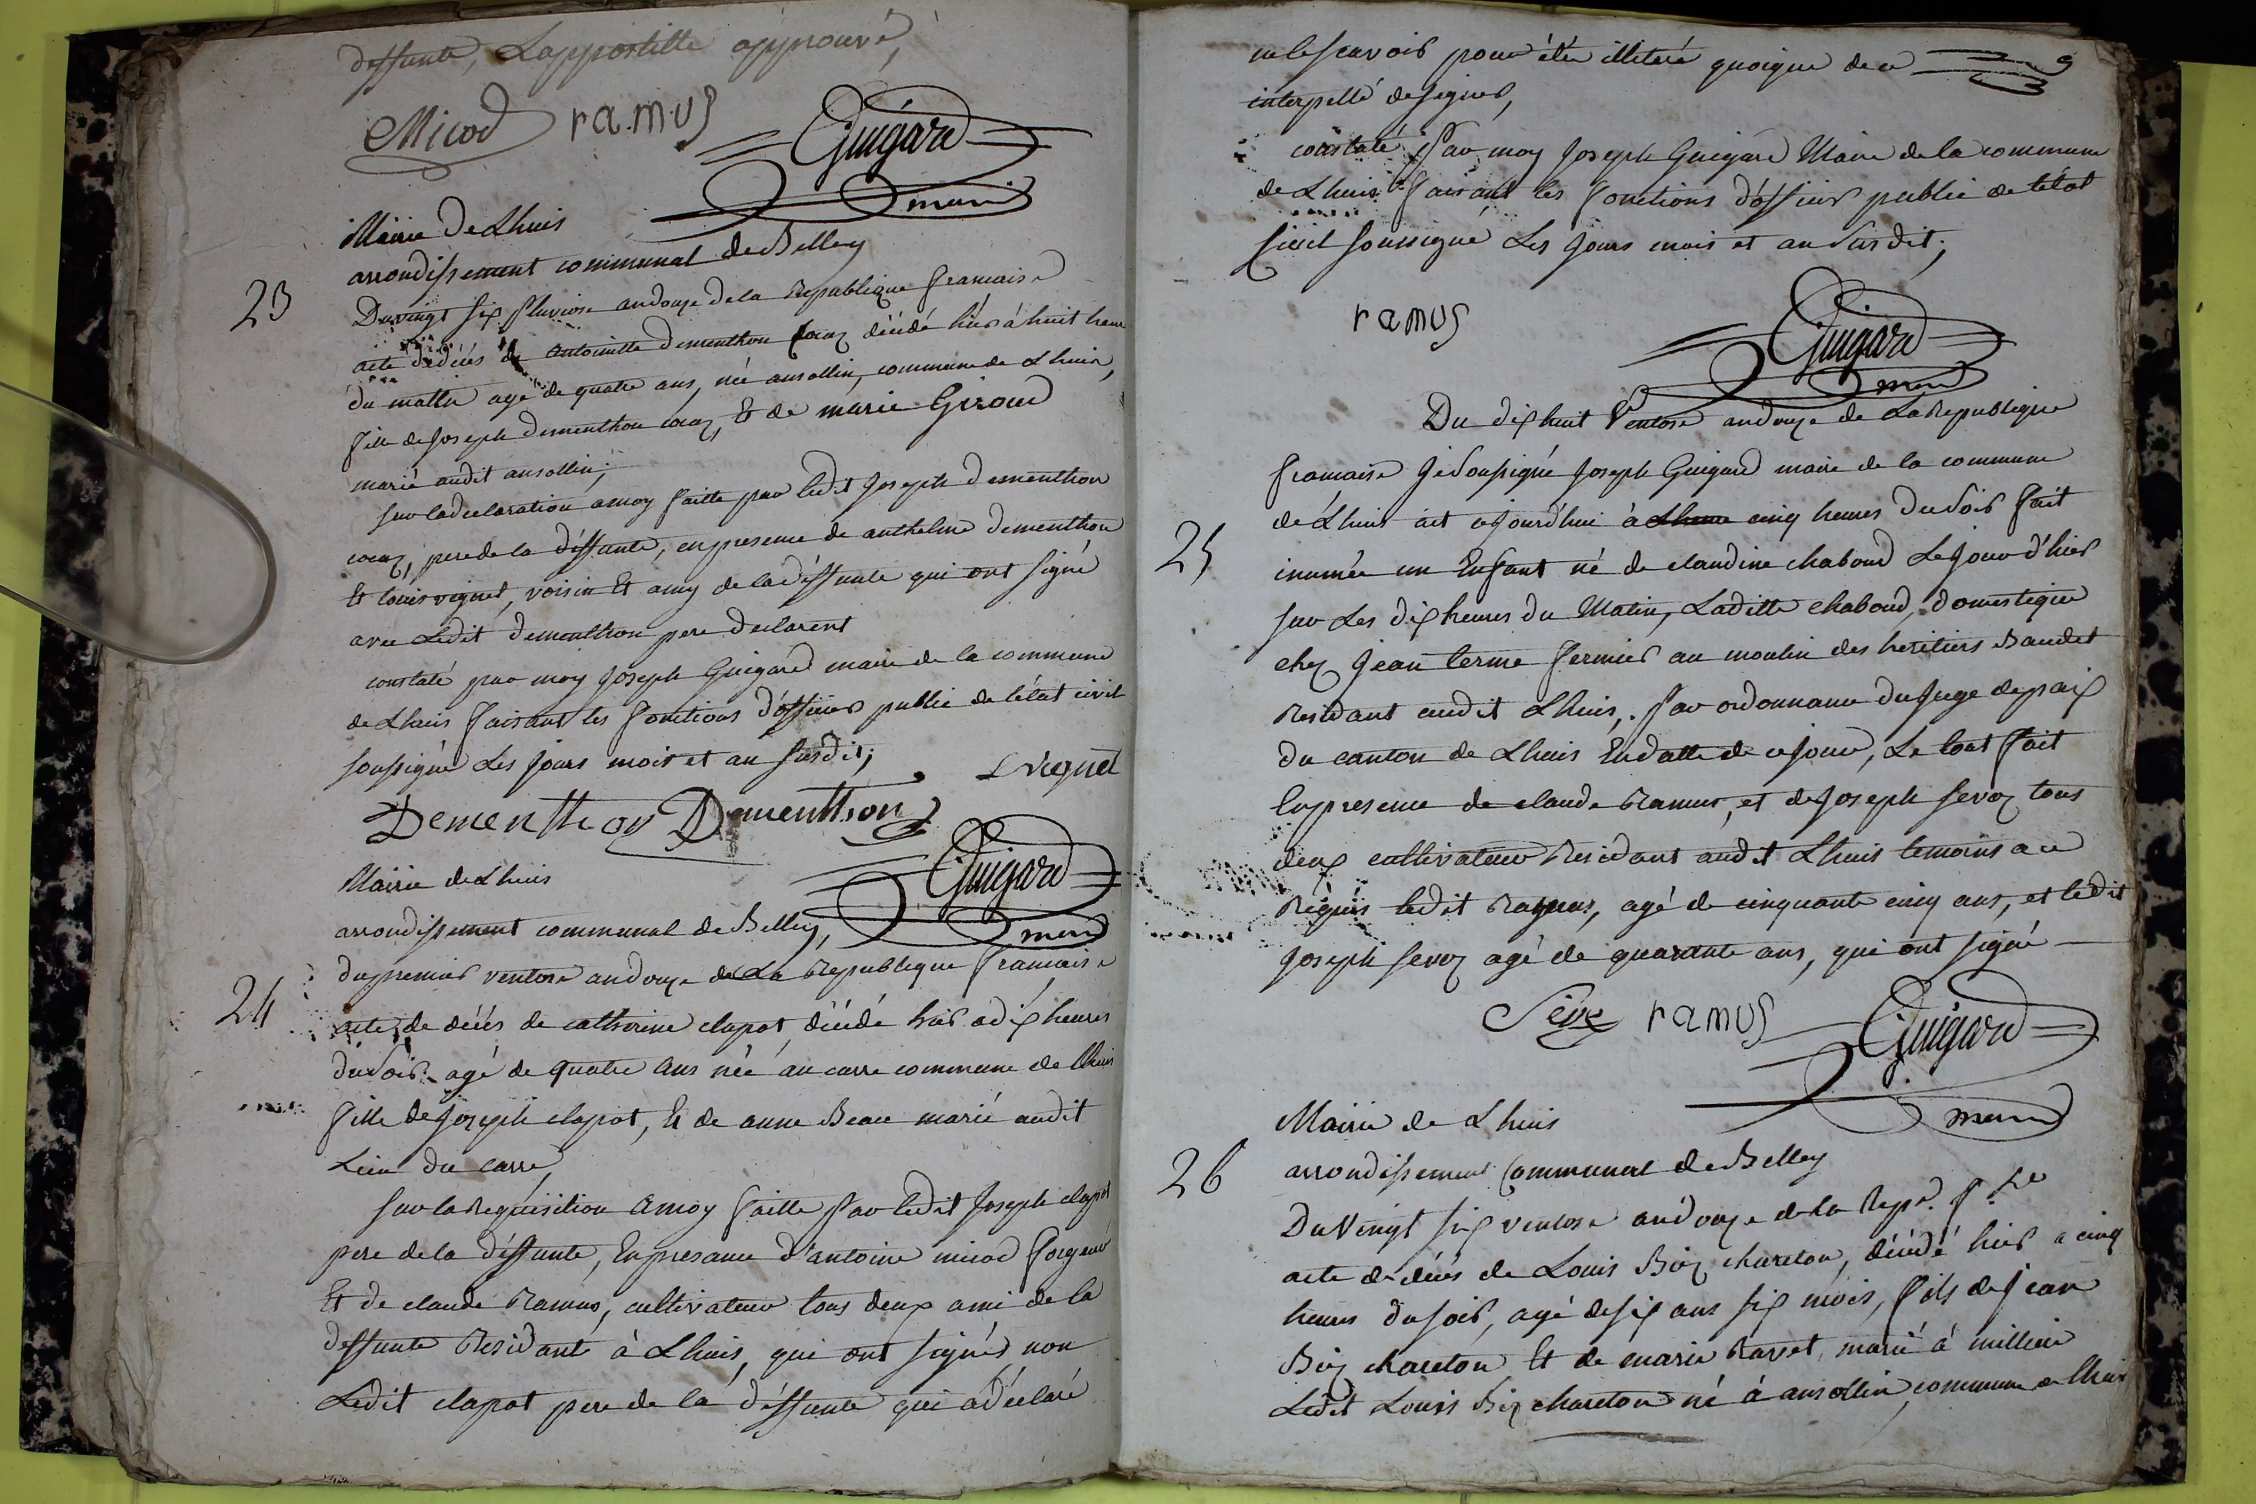 deffunte, Lappostille approuvé,
Micod ramus Guigard
maire
Mairie De Lhuis
arrondissement communal de Belley
23
Du vingt six Pluviose an douze de la Republique francaise
acte de décés de antoinette Dementhon cocaz décédé hier à huit heure
du matin agé de quatre ans, née ansollin, commune de Lhuis,
fille de Joseph dementhon cocaz, Et de marie Giroud
marié audit ansollin;
sur la declaration a moy faitte par ledit Joseph dementhon
cocaz, pere de la déffunte, en presence de anthelme dementhon
Et louis vignet, voisin Et amy de la déffunte qui ont signé
avec Ledit dementhon pere declarent
constaté par moy Joseph Guigard maire de la commune
de Lhuis faisant les fonctions d'officier public de l'état civil
soussigné Les jours mois et an susdit;
L vignet
Dementhon Dementhon
Guigard
maire
Mairie de Lhuis
arrondissement communal de Belley,
24
du premier ventose an douze de La Republique francaise
acte de décés de catherine clapot, décédé hier a dix heures
du soir agé de quatre ans née au carre commune de lhuis
fille de Joseph clapot, Et de anne Beau marié audit
Lieu du carre,
sur la Requisition a moy faitte par ledit Joseph clapot
pere de la déffunte, En presance d'antoine micod forgeur
Et de claude Ramus, cultivateur tous deux ami de la
deffunte Residant à Lhuis, qui ont signés non
Ledit clapot pere de la déffunte qui a déclaré
ne le scavoir pour étre illiteré quoique de ce
interpellé de signer,
constaté Par moy Joseph Guigard Maire de la commune
de Lhuis faisant les fonctions d'officier public de létat
Civil soussigné Les jours mois et an susdit;
ramus Guigard
maire
Du dix huit Ventose an douze de La Republique
francaise Je soussigné Joseph Guigard maire de la commune
25
de Lhuis ait cejourd'hui à Lheure cinq heures Du soir fait
inumée un Enfant né de claudine chaboud Le jour d'hier
sur Les dix heures du Matin, Laditte chaboud, domestique
chez Jean terme fermier au moulin des heritiers Baudet
Residant audit Lhuis, Par ordonnance du Juge de paix
du canton de Lhuis En datte de ce jour, Le tout fait
En presence de claude Ramus, et de Joseph sevoz tous
deux cultivateur Residant audit Lhuis temoins a ce
Requis ledit Ramus, agé de cinquante cinq ans, et ledit
Joseph sevoz agé de quarante ans, qui ont signé
ramus Guigard
maire
Mairie de Lhuis
26
arrondissement Communal de Belley
Du Vingt six ventose an douze de la Repe. fse
acte de décés de Louis Biez chareton, décédé hier a cinq
heures du soir, agé de six ans six mois, fils de jean
Biez chareton Et de marie Ravet, marié à millieu
Ledit Louis Biez chareton né à ansollin, commune de lhuis